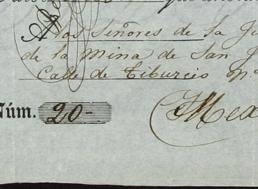 A los Señores de la Ju
de la Mina de San J
Calle de Tiburcio Nº
Núm. 20-
Mex